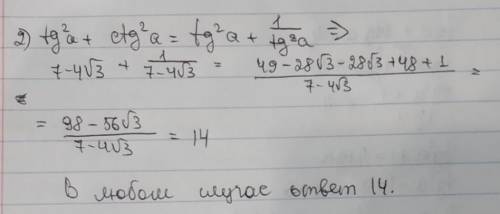 2) tg²a + ctg²a = tg²a + 1/tg²a ⇒
7-4√3 + 1/(7-4√3) = (49-28√3-28√3+48+1)/(7-4√3) =
= (98-56√3)/(7-4√3) = 14
В любом случае ответ 14.